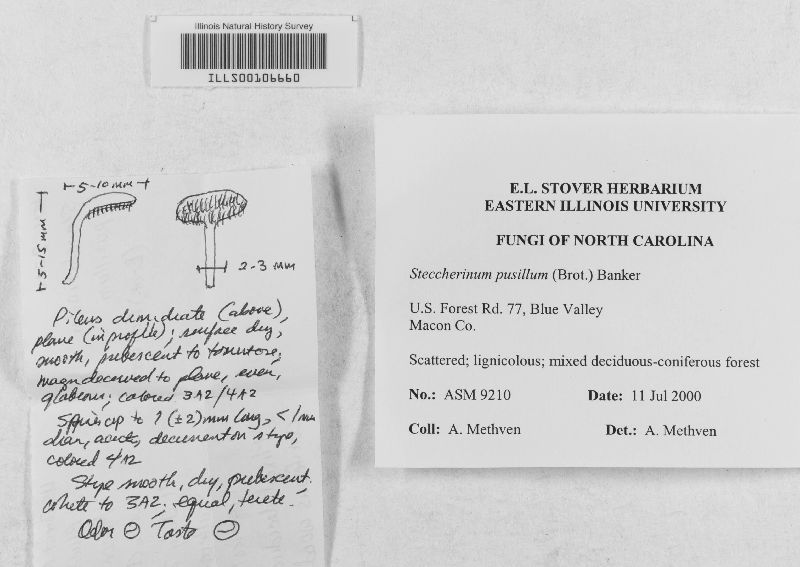 Illinois Natural History Survey
ILLS00106660
5-10 mm
5-15 mm
2-3 mm
Pileus dimidiate (above),
plane (in profile); surface dry,
smooth, pubescent to tomentose;
margin decurved to plane, even,
glabrous; colored 3A2/4A2
Spines up to 1 (±2) mm long, < 1 mm
diam, acute, decurrent on stipe,
colored 4A2
Stipe smooth, dry, pubescent.
white to 3A2; equal, terete.
Odor ⊖ Taste ⊖
E.L. STOVER HERBARIUM
EASTERN ILLINOIS UNIVERSITY
FUNGI OF NORTH CAROLINA
Steccherinum pusillum (Brot.) Banker
U.S. Forest Rd. 77, Blue Valley
Macon Co.
Scattered; lignicolous; mixed deciduous-coniferous forest
No.: ASM 9210 Date: 11 Jul 2000
Coll: A. Methven Det.: A. Methven